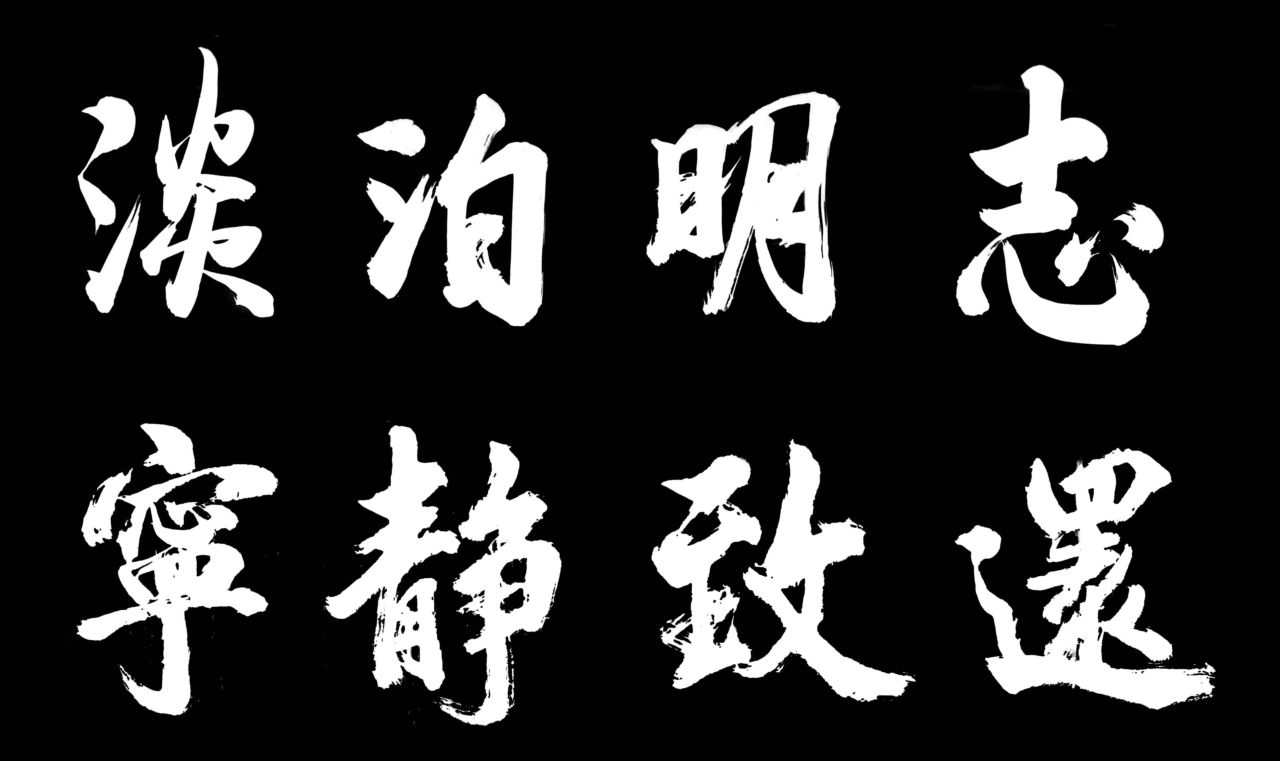 淡泊明志
寧静致還